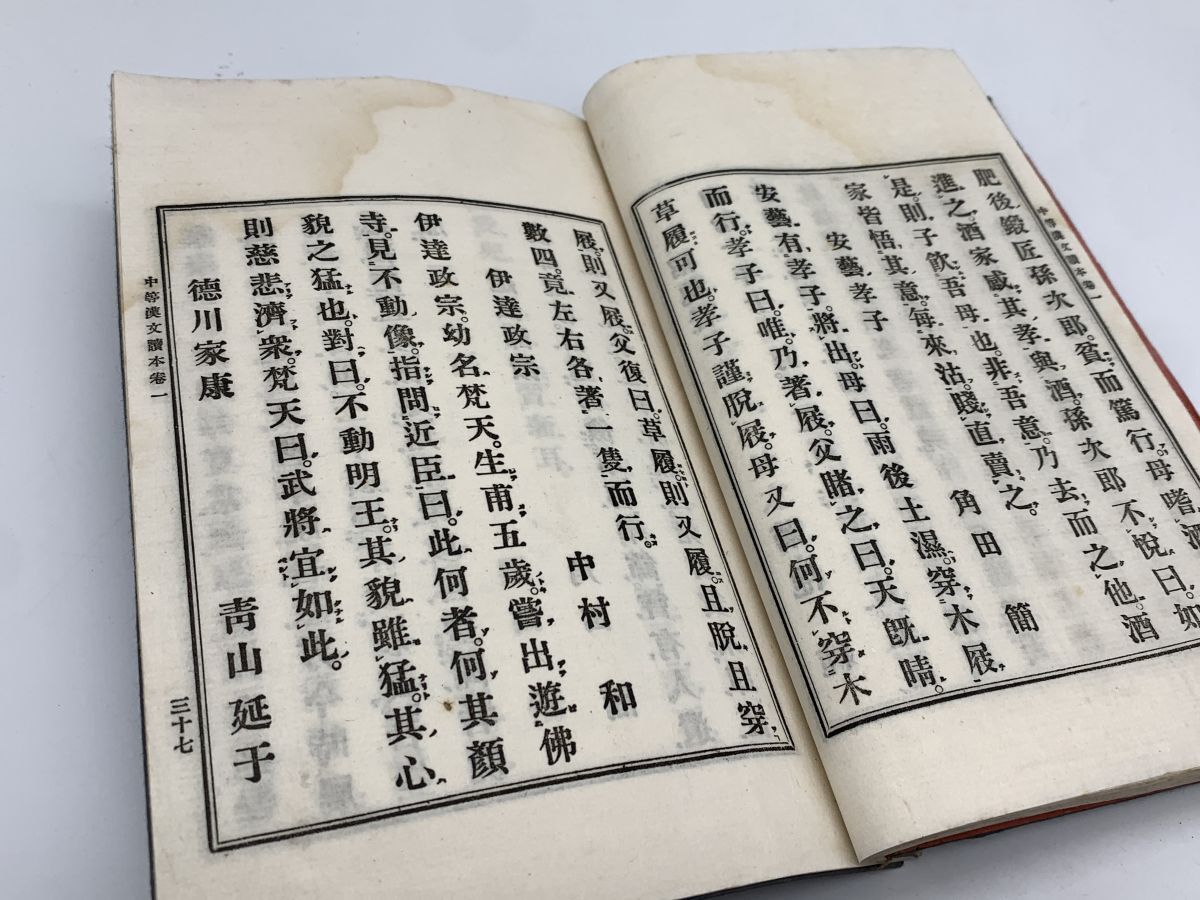 中等漢文讀本卷一
肥後鍛匠孫次郎。貧而篤行。母嗜酒
進之。酒家感其孝與酒。孫次郎不悅曰。如
是。則子飲吾母也。非吾意。乃去而之他。酒
家皆悟其意。每來沽。賤直賣之。
安藝孝子 角田 簡
安藝有孝子。將出。母曰。雨後土濕。穿木屐
而行。孝子曰。唯。乃著屐。父睹之曰。天旣晴。
草履可也。孝子謹脫屐。母又曰。何不穿木
屐。則又屐。父復曰。草履。則又履。且脫且穿
數四。竟左右各著一隻而行。
伊達政宗 中村 和
伊達政宗。幼名梵天。生甫五歲。嘗出遊佛
寺。見不動像。指問近臣曰。此何者。何其顏
貌之猛也。對曰。不動明王。其貌雖猛。其心
則慈悲濟衆。梵天曰。武將宜如此。
德川家康 靑山延于
中等漢文讀本卷一
三十七